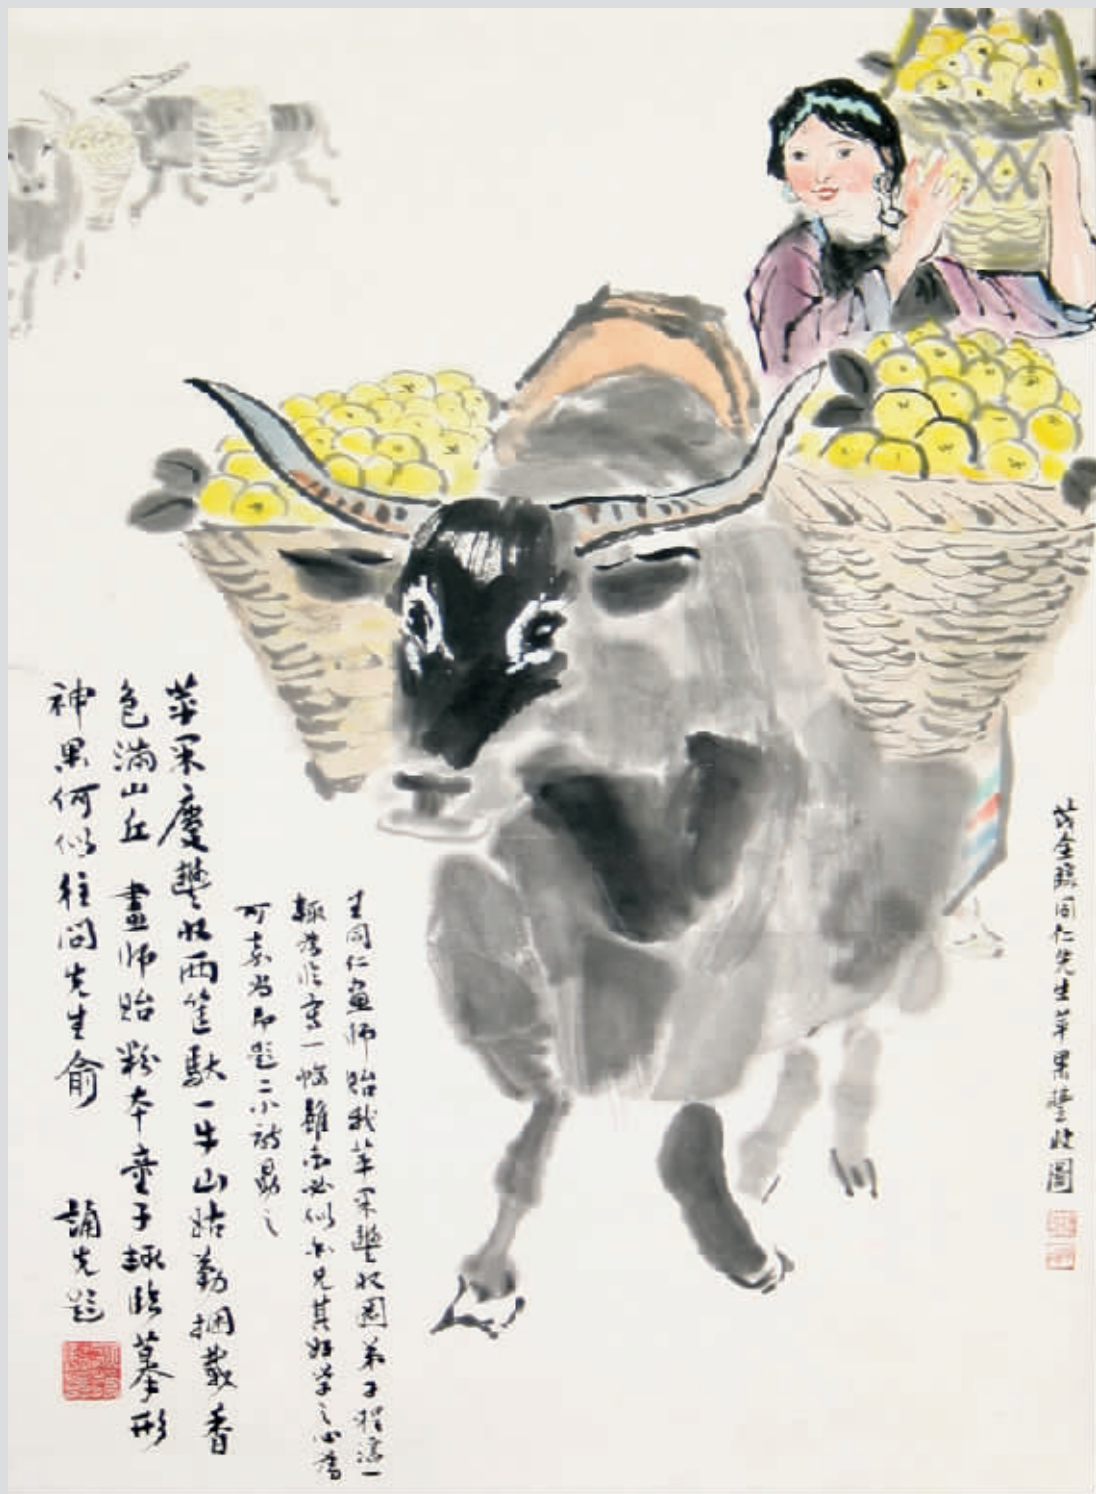 同仁先生苹果豐收圖
同仁畫師貽我苹果豐收圖弟子程一
輒臨寫一幀雖必似亦見其好学之心
可嘉為即題二小詩勗之
苹果慶豐收兩筐馱一牛山姑勤捆載香
色滿山丘 畫師貽粉本童子輒臨摹形
神果何似往問先生俞 誦先題